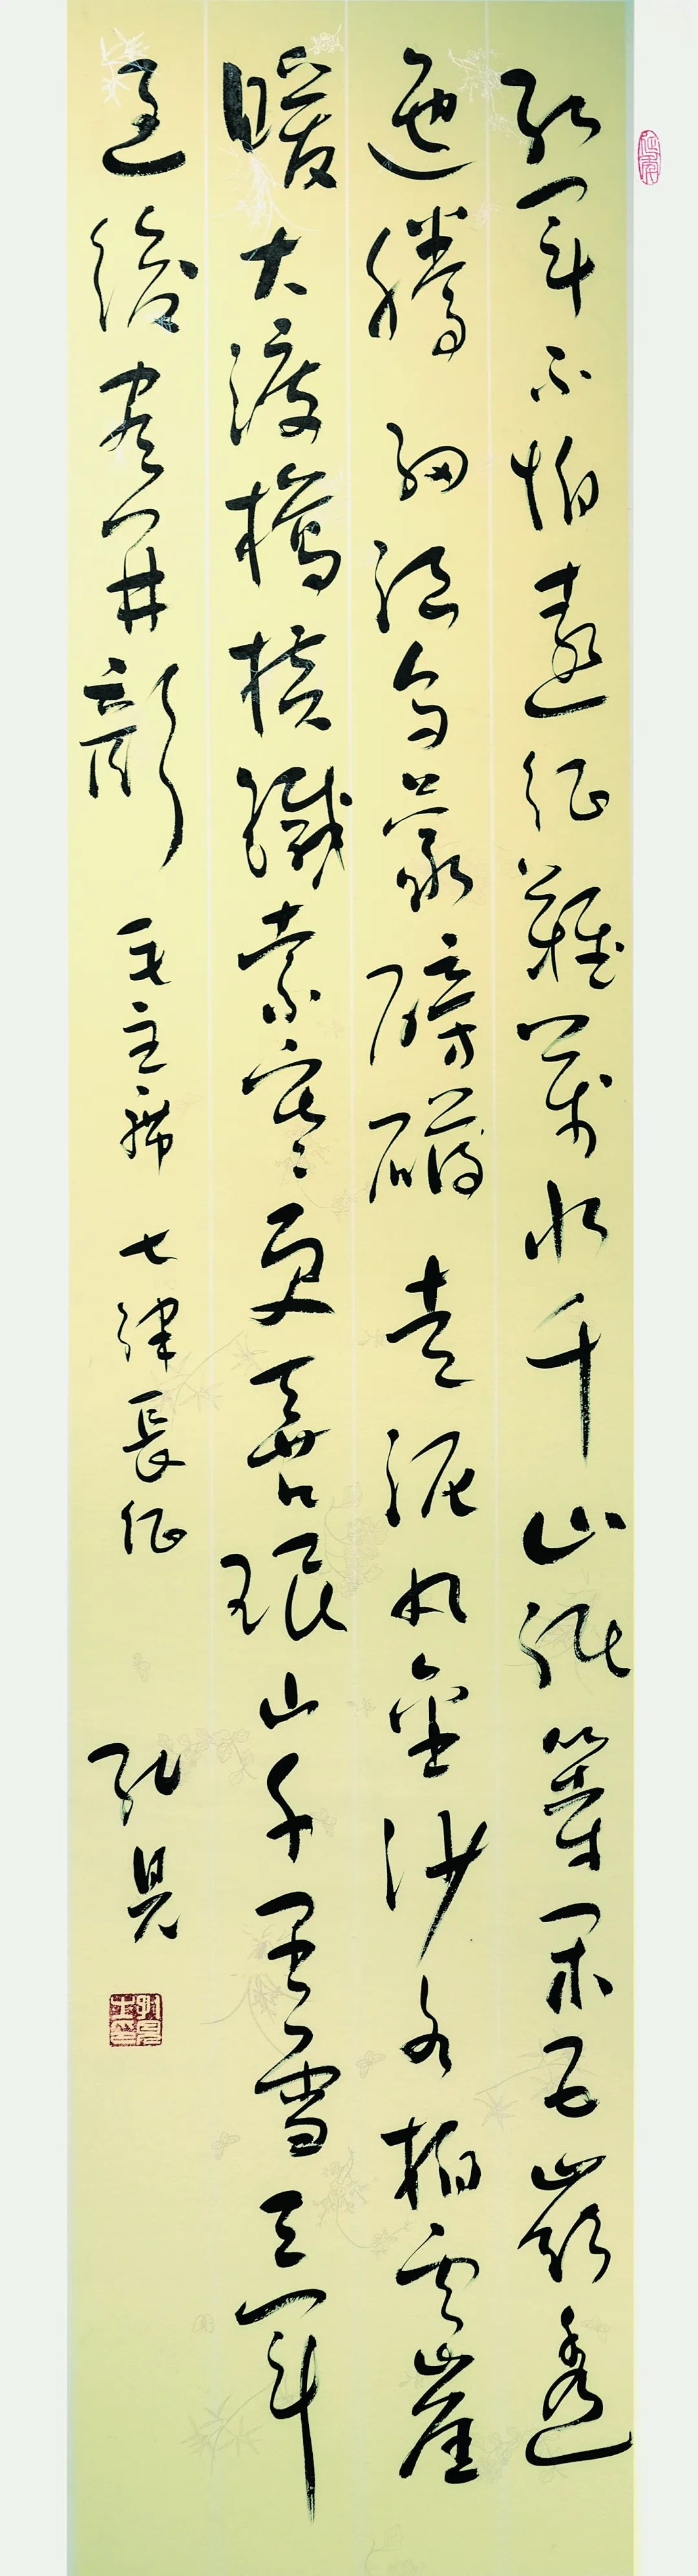 红军不怕远征难万水千山只等闲五岭逶
迤腾细浪乌蒙磅礴走泥丸金沙水拍云崖
暖大渡桥横铁索寒更喜岷山千里雪三军
过后尽开颜 毛主席 七律长征 孔见